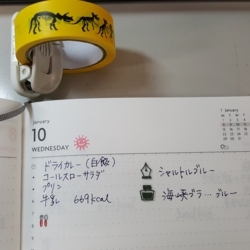 January
10
WEDNESDAY
ドライカレー（白飯）
コールスローサラダ
プリン
牛乳 669kcal
シャルトルブルー
海峡 ブルー
1 January